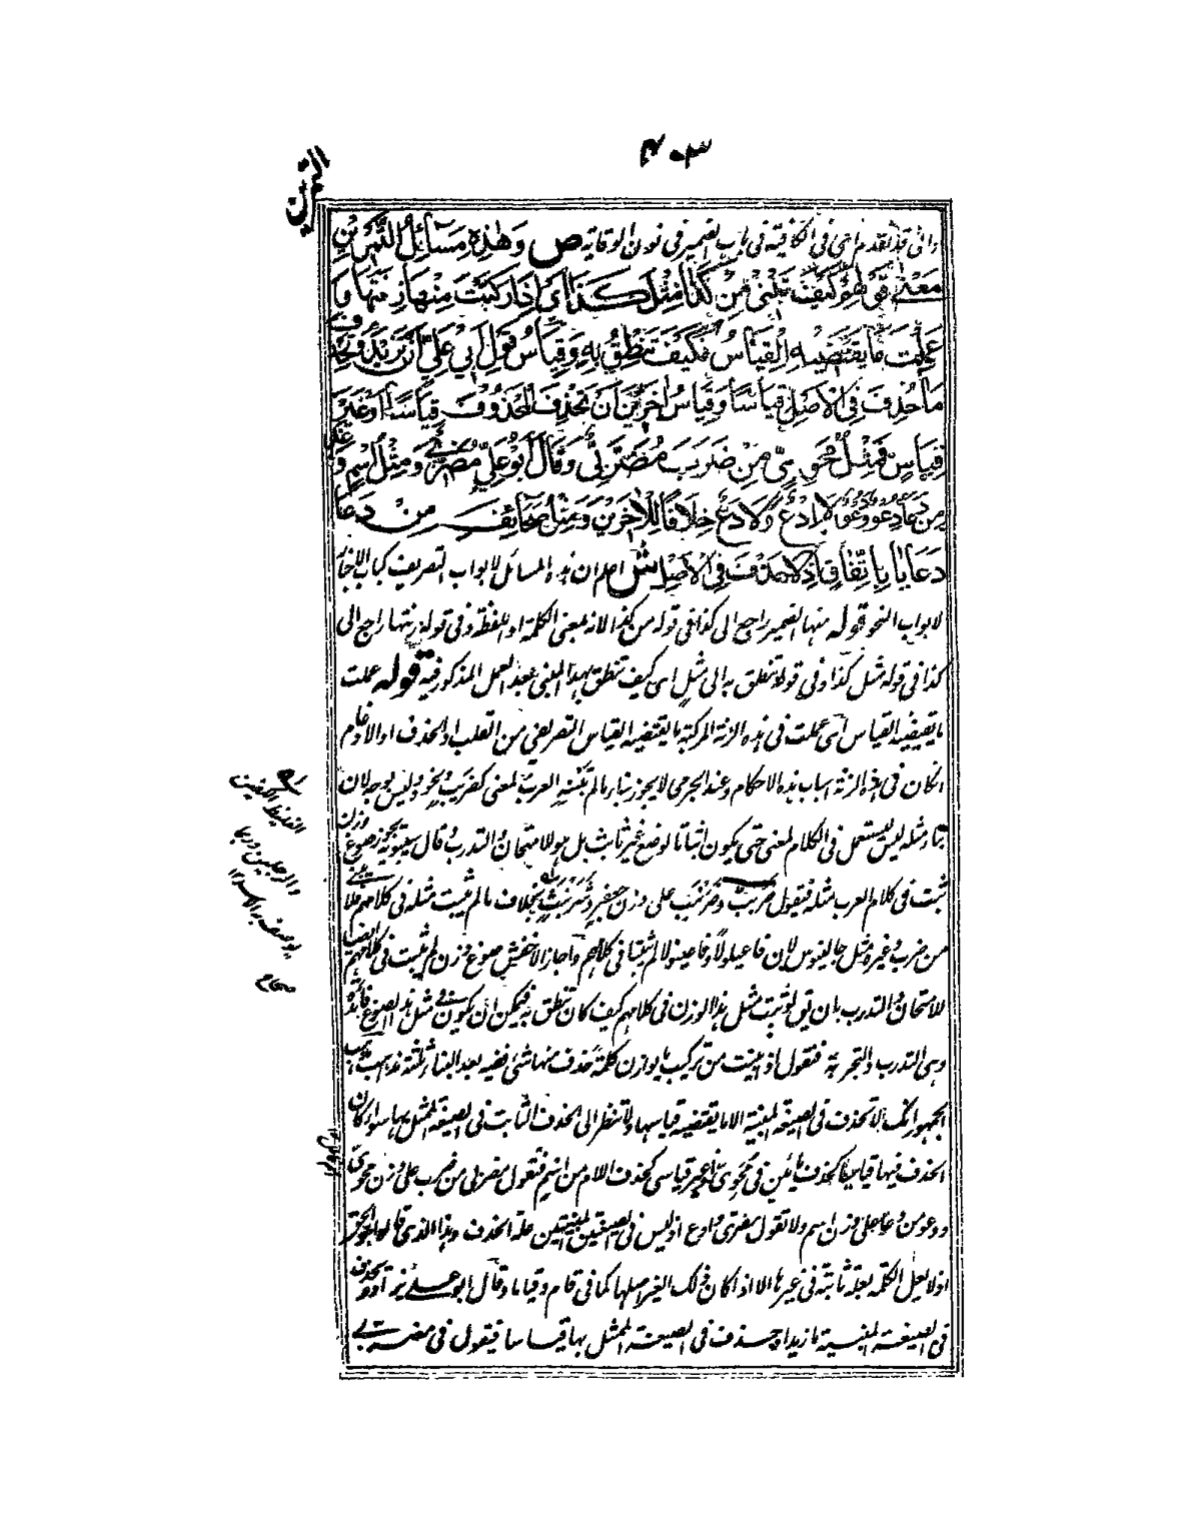 ۴۰۳
التمرين
وانى قد تقدم اى فى الكافية فى باب الضمير فى نون الوقاية ص وَهٰذِهِ مَسَائِلُ التَّمْرِيْنِ
مَعْنٰى قَوْلِهِمْ كَيْفَ تَبْنِىْ مِنْ كَذَا مِثْلَ كَذَا اَىْ اِذَا رَكَّبْتَ مِنْهَا زِنَتَهَا وَ
عَمِلْتَ مَا يَقْتَضِيْهِ الْقِيَاسُ فَكَيْفَ تَنْطِقُ بِهِ وَقِيَاسُ قَوْلِ اَبِىْ عَلِىٍّ اَنْ تَزِيْدَ وَتَحْذِفَ
مَا حُذِفَ فِى الْاَصْلِ قِيَاسًا وَقِيَاسُ اٰخَرِيْنَ اَنْ تَحْذِفَ الْمَحْذُوْفَ قِيَاسًا اَوْ غَيْرَ
قِيَاسٍ فَمِثْلُ مُحَوِىٍّ مِنْ ضَرَبَ مُضَرِّبِىٌّ وَقَالَ اَبُوْ عَلِىٍّ مُضَرِىٌّ وَمِثْلُ اسْمٍ وَغَدٍ
مِنْ دَعَا دِعْوٌ وَدَعْوٌ لَا اِدْعٌ وَلَا دَعٌ خِلَافًا لِلْاٰخَرِيْنَ وَمِثْلُ صَحَائِفَ مِنْ دَعَا
دَعَايَا بِاتِّفَاقٍ اِذْ لَا حَذْفَ فِى الْاَصْلِ ش اعلم ان هذه المسائل لابواب التصريف كباب الاخبار
لابواب النحو قوله منها الضمير راجع الى كذا فى قوله من كذا لانه بمعنى الكلمة او اللفظة وفى قوله زنتها راجع الى
كذا فى قوله مثل كذا وفى قوله تنطق به الى مثل اى كيف تنطق بهذا المبنى بعد العمل المذكور فيه قوله عملت
ما يقتضيه القياس اى عملت فى هذه الزنة المركبة ما يقتضيه القياس التصريفى من القلب او الحذف او الادغام
ان كان فى هذه الزنة اسباب هذه الاحكام وعند الجرمى لا يجوز بناء ما لم تبنه العرب لمعنى كضربب ونحوه وليس بوجه لان
بناء مثله ليس ليستعمل فى الكلام لمعنى حتى يكون اثباتا لوضع غير ثابت بل هو للامتحان والتدرب وقال سيبويه يجوز صوغ وزن
ثبت فى كلام العرب مثله فتقول ضربب وضرنبب على وزن جعفر وشرنبث بخلاف ما لم يثبت مثله فى كلامهم فلا يبنى
من ضرب وغيره مثل جالينوس لان فاعيلولا وفاعينولا لم يثبتا فى كلامهم واجاز الاخفش صوغ وزن لم يثبت فى كلامهم ايضا
للامتحان والتدرب بان يق لو ثبت مثل هذا الوزن فى كلامهم كيف كان تنطق به فيمكن ان يكون فى مثل هذا الصوغ فائدة
وهى التدرب والتجربة فتقول اذا بنيت من تركيب ما يوازن كلمة حذف منها شئ ففيه بعد البناء ثلثة مذاهب مذهب
الجمهور انك لا تحذف فى الصيغة المبنية الا ما يقتضيه قياسها ولا تنظر الى الحذف الثابت فى الصيغة الممثل بها سواء كان
الحذف فيها قياسيا كحذف يائين فى محوى او غير قياسى كحذف اللام من اسم فتقول مضربى من ضرب على وزن محوى
ودعو من دعا على وزن اسم ولا تقول مضرى وادع اذ ليس فى الصيغتين المبنيتين علة الحذف وهذا الذى قالوا هو الحق
اذ لا يعل الكلمة بعلة ثابتة فى غيرها الا اذا كان ذلك الغير اصلها كما فى قام وقياما وقال ابو على تزيد وتحذف
فى الصيغة المبنية ما زيد او حذف فى الصيغة الممثل بها قياسا فيقول فى مضربى
الغليظ الكفين
والرجلين وربما
يوصف به الاسد ١٢
صحاح